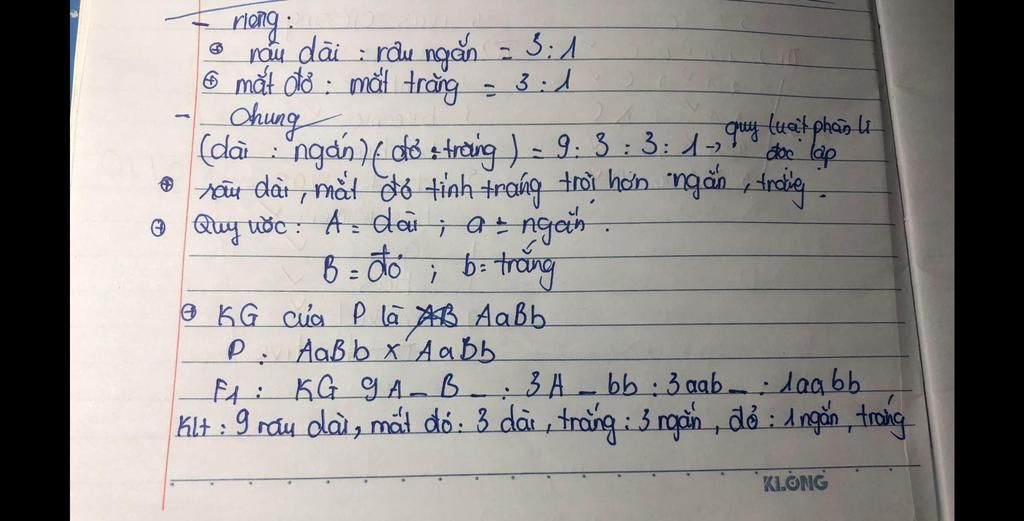 - riêng:
⊕ râu dài : râu ngắn = 3:1
⊕ mắt đỏ : mắt trắng = 3:1
- Chung
(dài : ngắn)(đỏ : trắng) = 9:3:3:1 → quy luật phân li
độc lập
⊕ râu dài, mắt đỏ tính trạng trội hơn ngắn, trắng.
⊕ Quy ước: A = dài ; a = ngắn.
B = đỏ ; b = trắng
⊕ KG của P là AaBb
P : AaBb x AaBb
F1 : KG 9 A_B_ : 3A_bb : 3aab_ : 1aabb
KH : 9 râu dài, mắt đỏ : 3 dài, trắng : 3 ngắn, đỏ : 1 ngắn, trắng
KLONG